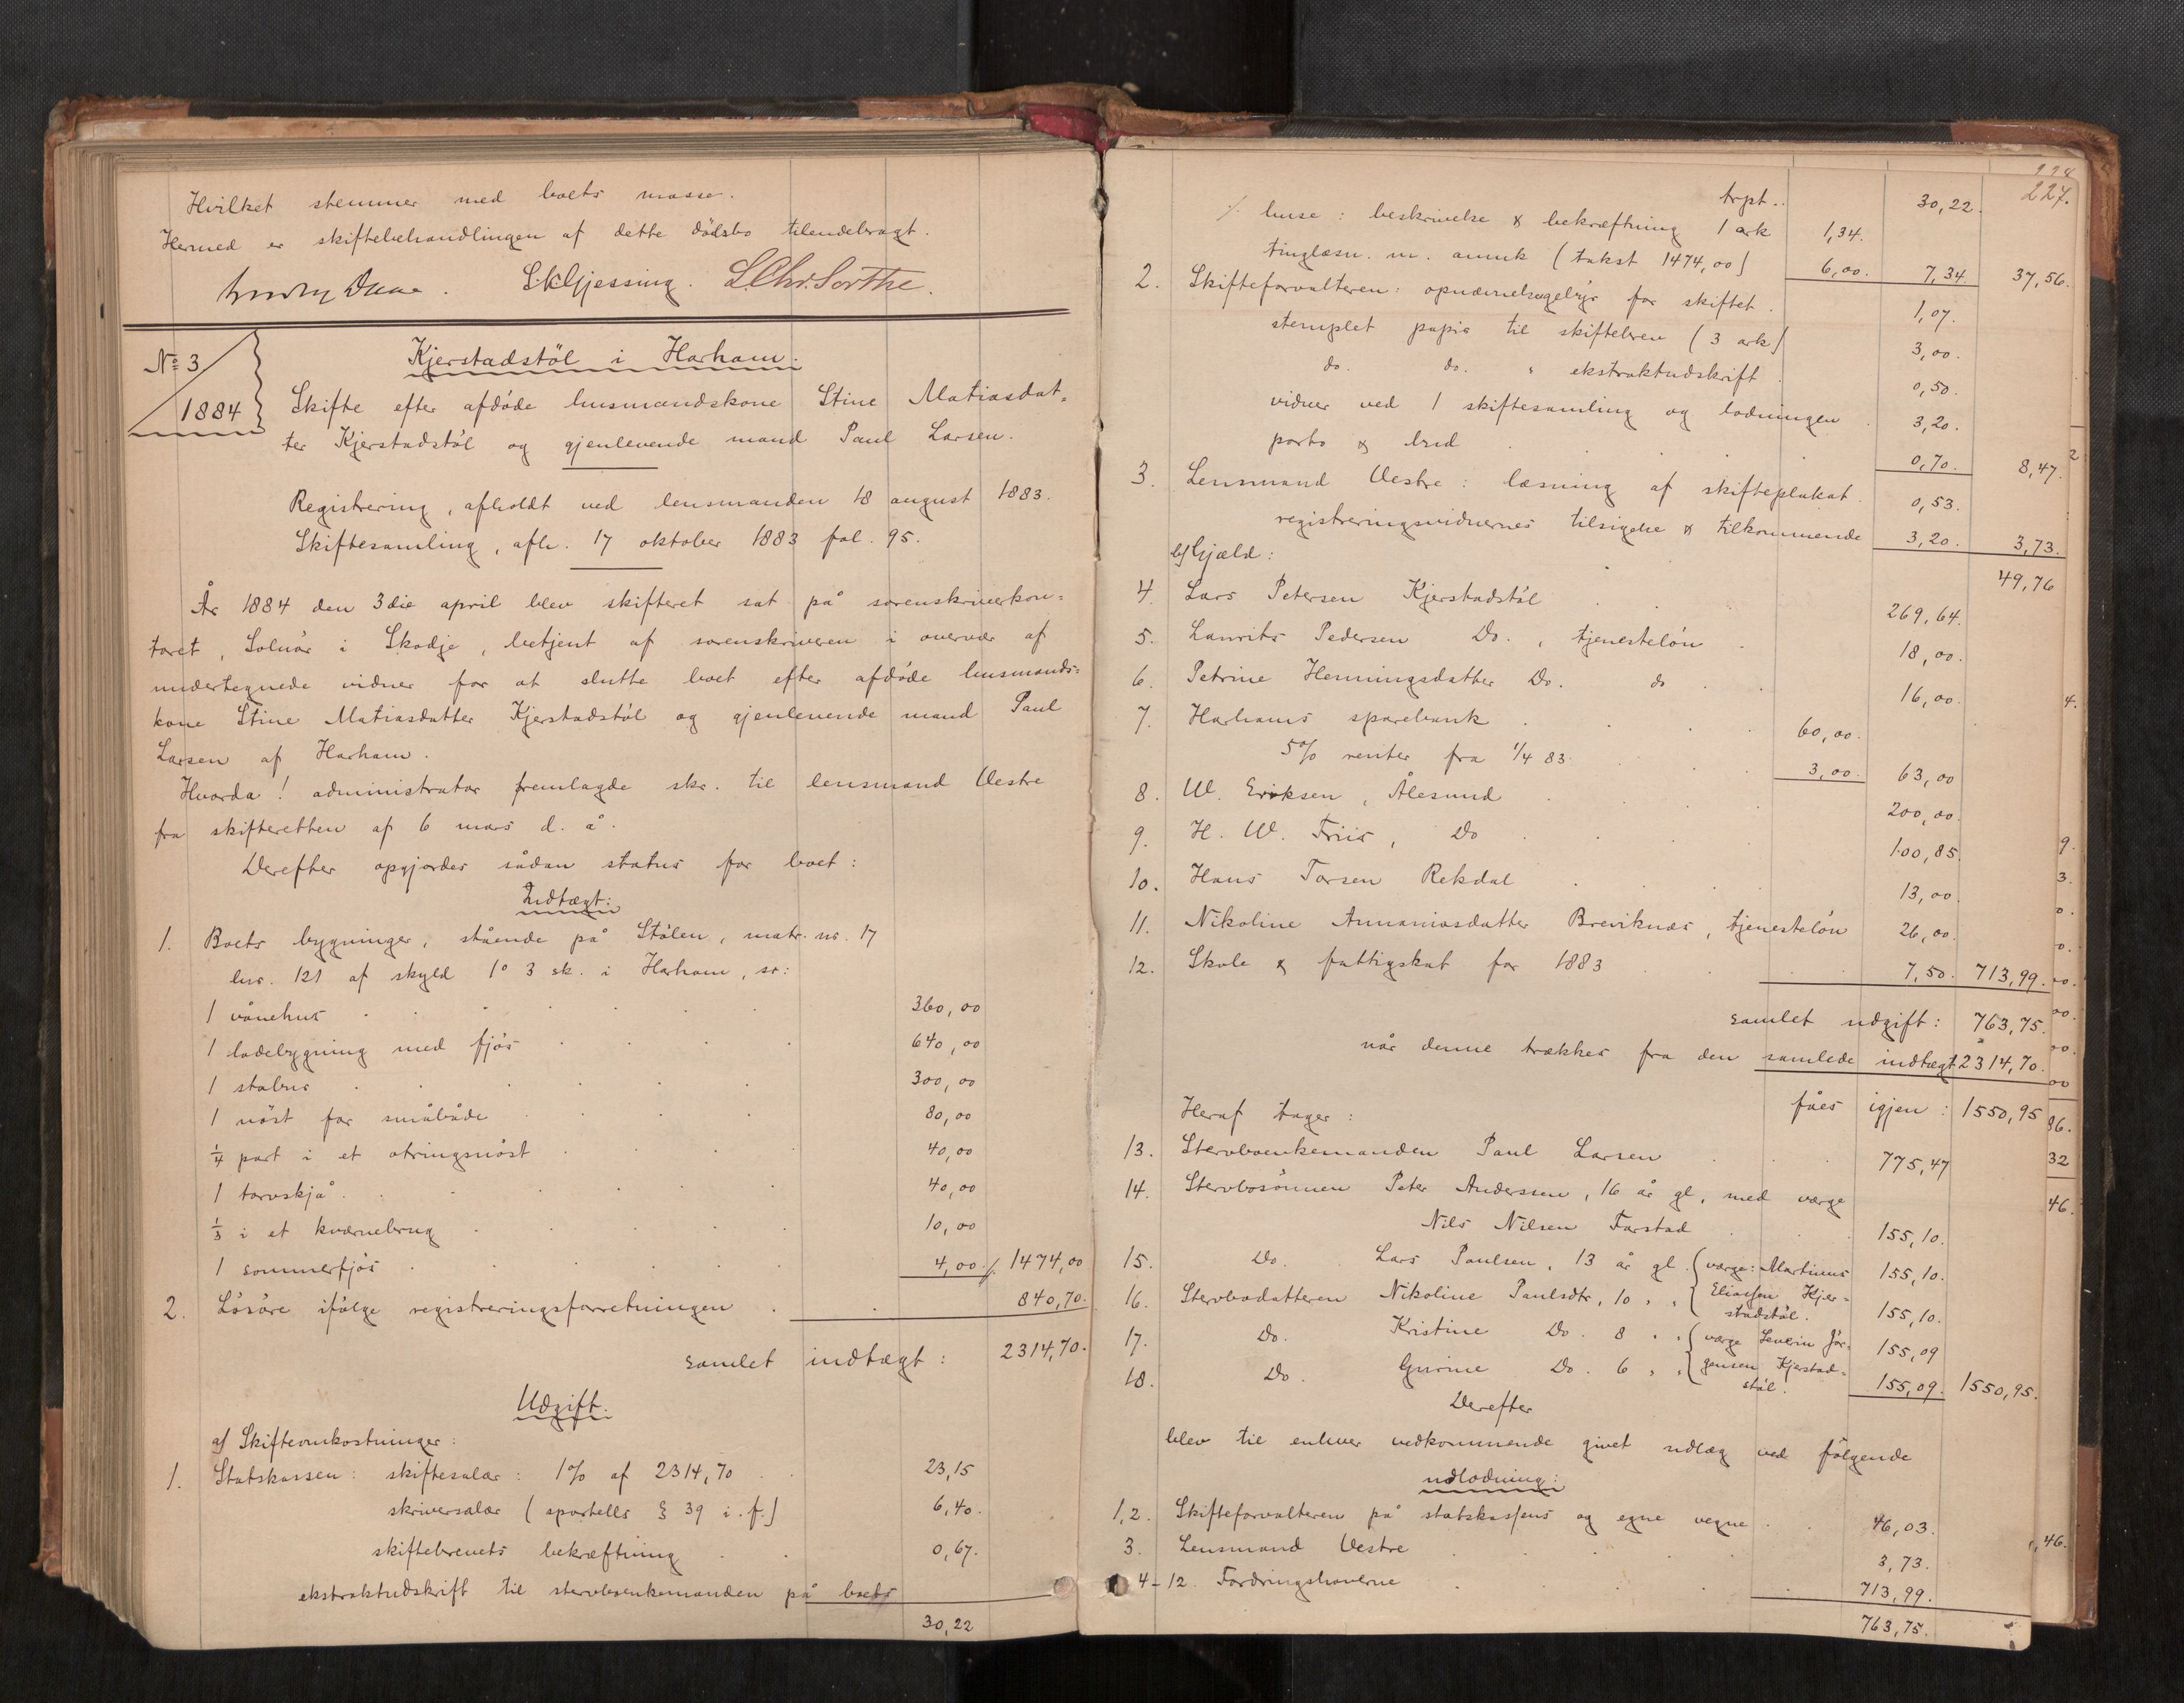 Hvilket stemmer med boets masse.
Hermed er skiftebehandlingen af dette dödsbo tilendebragt.
Daae. SkGjessing. LChr. Sorthe.
No 3
1884
Kjerstadstöl i Harham.
Skifte efter afdöde husmandskone Stine Matiasdat-
ter Kjerstadstöl og gjenlevende mand Paul Larsen.
Registrering, afholdt ved lensmanden 18 august 1883.
Skiftesamling, afh. 17 oktober 1883 fol. 95.
År 1884 den 3die april blev skifteret sat på sorenskriverkon-
toret, Solnör i Skodje, betjent af sorenskriveren i overvær af
undertegnede vidner for at slutte boet efter afdöde husmands-
kone Stine Matiasdatter Kjerstadstöl og gjenlevende mand Paul
Larsen af Harham.
Hvorda! administrator fremlagde skr. til lensmand Vestre
fra skifteretten af 6 mars d. å.
Derefter opgjordes sådan status for boet:
Indtægt:
1. Boets bygninger, stående på Stölen, matr. nr. 17
lnr. 121 af skyld 1º 3 sk. i Harham, sr:
1 vånehus 360,00
1 ladebygning med fjös 640,00
1 stabur 300,00
1 nöst for småbåde 80,00
1/4 part i et otringsnöst 40,00
1 torvskjå 40,00
1/3 i et kværnebrug 10,00
1 sommerfjös 4,00 ./. 1474,00
2. Lösöre ifölge registreringsforretningen 840,70.
samlet indtægt: 2314,70.
Udgift.
a) Skifteomkostninger:
1. Statskassen: skiftesalær: 1% af 2314,70 23,15
skriversalær (sportells § 39 i. f.) 6,40.
skiftebrevets bekræftning 0,67.
ekstraktudskrift til stervboenkemanden på boets
30,22
227.
trpt. 30,22.
./. huse: beskrivelse & bekræftning 1 ark 1,34.
tinglæsn. m. anmk (takst 1474,00) 6,00. 7,34. 37,56.
2. Skifteforvalteren: opnævnelsegebyr for skiftet 1,07.
stemplet papir til skiftebrev (3 ark) 3,00.
do. do. " ekstraktudskrift 0,50.
vidner ved 1 skiftesamling og lodningen 3,20.
porto & bud 0,70. 8,47.
3. Lensmand Vestre: læsning af skifteplakat 0,53.
registreringsvidnernes tilsigelse & tilkommende 3,20. 3,73.
49,76
b) Gjæld:
4. Lars Petersen Kjerstadstöl 269,64.
5. Laurits Pedersen Do., tjenestelön 18,00.
6. Petrine Henningsdatter Do. do 16,00.
7. Harhams sparebank 60,00.
5% renter fra 1/4 83 3,00. 63,00
8. W. Eriksen, Ålesund 200,00.
9. H. W. Friis, Do 100,85.
10. Hans Torsen Rekdal 13,00.
11. Nikoline Annaniasdatter Breviknæs, tjenestelön 26,00.
12. Skole & fattigskat for 1883 7,50. 713,99.
samlet udgift: 763,75.
når denne trækkes fra den samlede indtægt 2314,70.
fåes igjen: 1550,95
Heraf tager:
13. Stervboenkemanden Paul Larsen 775,47
14. Stervbosönnen Peter Anderssen, 16 år gl, med værge
Nils Nilsen Farstad 155,10.
15. Do. Lars Paulsen, 13 år gl. (værge: Martinus 155,10.
16. Stervbodatteren Nikoline Paulsdtr, 10 " " Eliassen Kjer-
stadstöl. 155,10.
17. Do. Kristine Do. 8 " " (værge Severin Jör- 155,09
18. Do. Gurine Do. 6 " " gensen Kjerstad-
stöl. 155,09. 1550,95.
Derefter
blev til enhver vedkommende givet udlæg ved fölgende
udlodning:
1,2. Skifteforvalteren på statskassens og egne vegne 46,03.
3. Lensmand Vestre 3,73.
4-12. Fordringshaverne 713,99.
763,75.